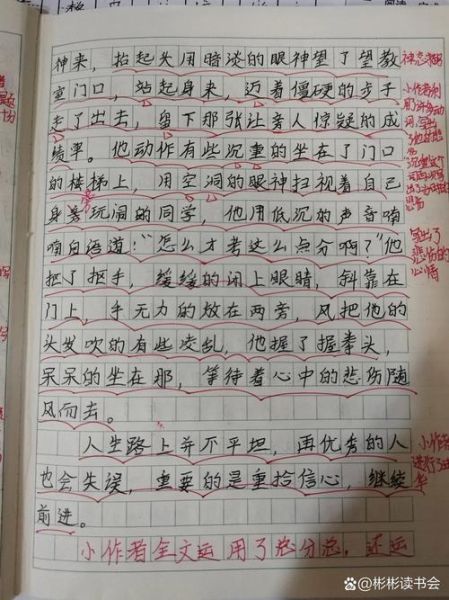 神来，抬起头用暗淡的眼神望了望教
室门口，站起身来，迈着僵硬的步子
走了出去，留下那张让旁人惊疑的成
绩率。他动作有些沉重的坐在了门口
的楼梯上，用空洞的眼神扫视着自己
身旁玩闹的同学，他用低沉的声音喃
喃自语道："怎么才考这么点分啊？"他
抠了抠手，缓缓的闭上眼睛，斜靠在
门上，手无力的放在两旁，风把他的
头发吹的有些凌乱，他握了握拳头，
呆呆的坐在那，等待着心中的悲伤随
风而去。
人生路上并不平坦，再优秀的人
也会失误，重要的是重拾信心，继续
前进。
小作者全文运用了总分总，还运
写出了
悲伤的
心情
小作者
@彬彬读书会